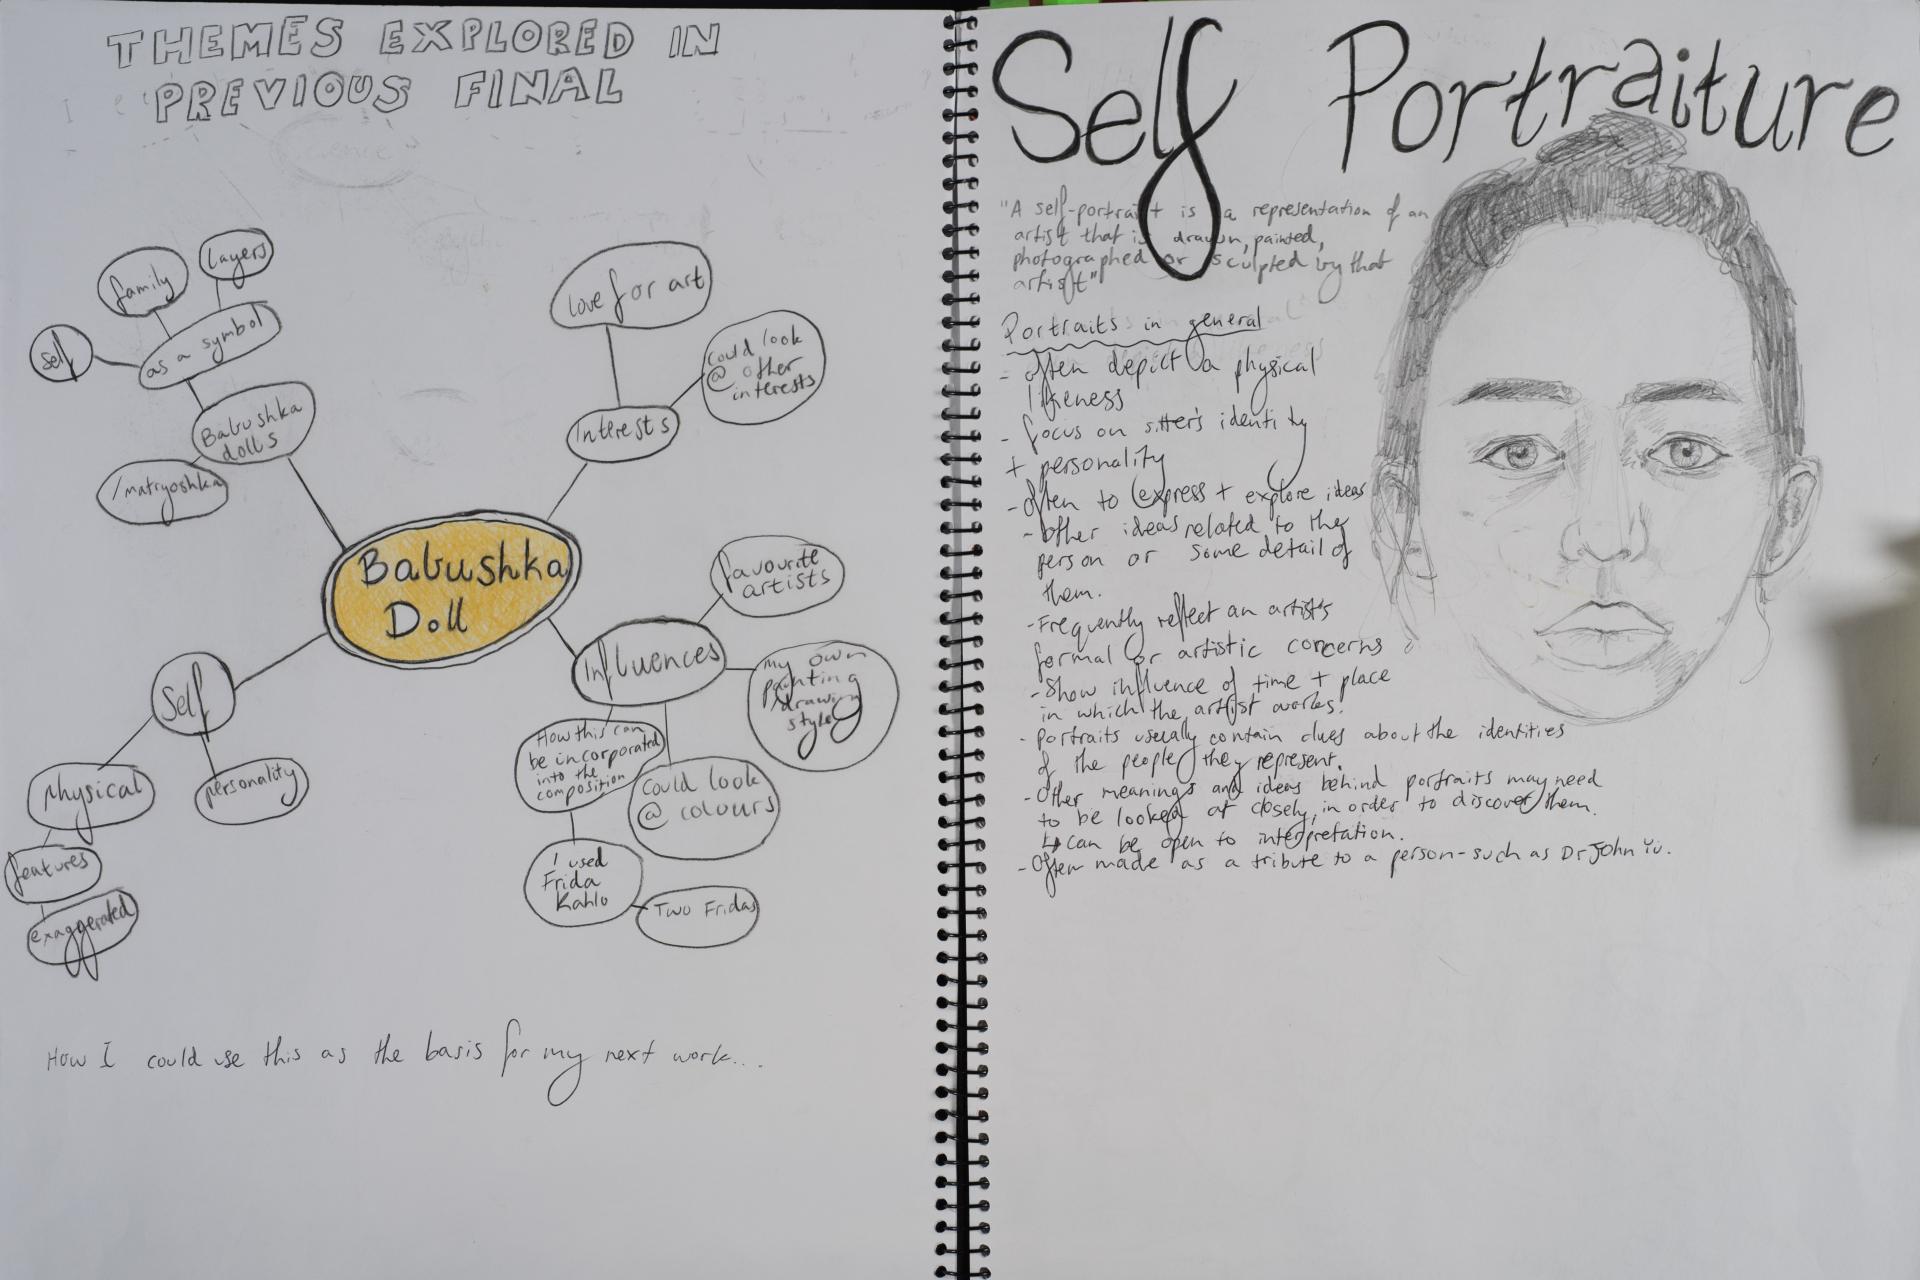 THEMES EXPLORED IN
PREVIOUS FINAL
family
layers
self
as a symbol
Babushka
dolls
/matryoshka
love for art
could look
@ other
interests
Interests
Babushka
Doll
favourite
artists
Influences
my own
painting
/drawing
style
How this can
be incorporated
into the
composition
could look
@ colours
I used
Frida
Kahlo
Two Fridas
Self
physical
personality
features
exaggerated
How I could use this as the basis for my next work...
Self Portraiture
"A self-portrait is a representation of an
artist that is drawn, painted,
photographed or sculpted by that
artist"
Portraits in general
- often depict a physical
likeness
- focus on sitter's identity
+ personality
- often to express + explore ideas
- other ideas related to the
person or some detail of
them.
- Frequently reflect an artists
formal or artistic concerns
- Show influence of time + place
in which the artist works.
- Portraits usually contain clues about the identities
of the people they represent.
- Other meanings and ideas behind portraits may need
to be looked at closely, in order to discover them.
↳ can be open to interpretation.
- Often made as a tribute to a person - such as Dr John Yu.